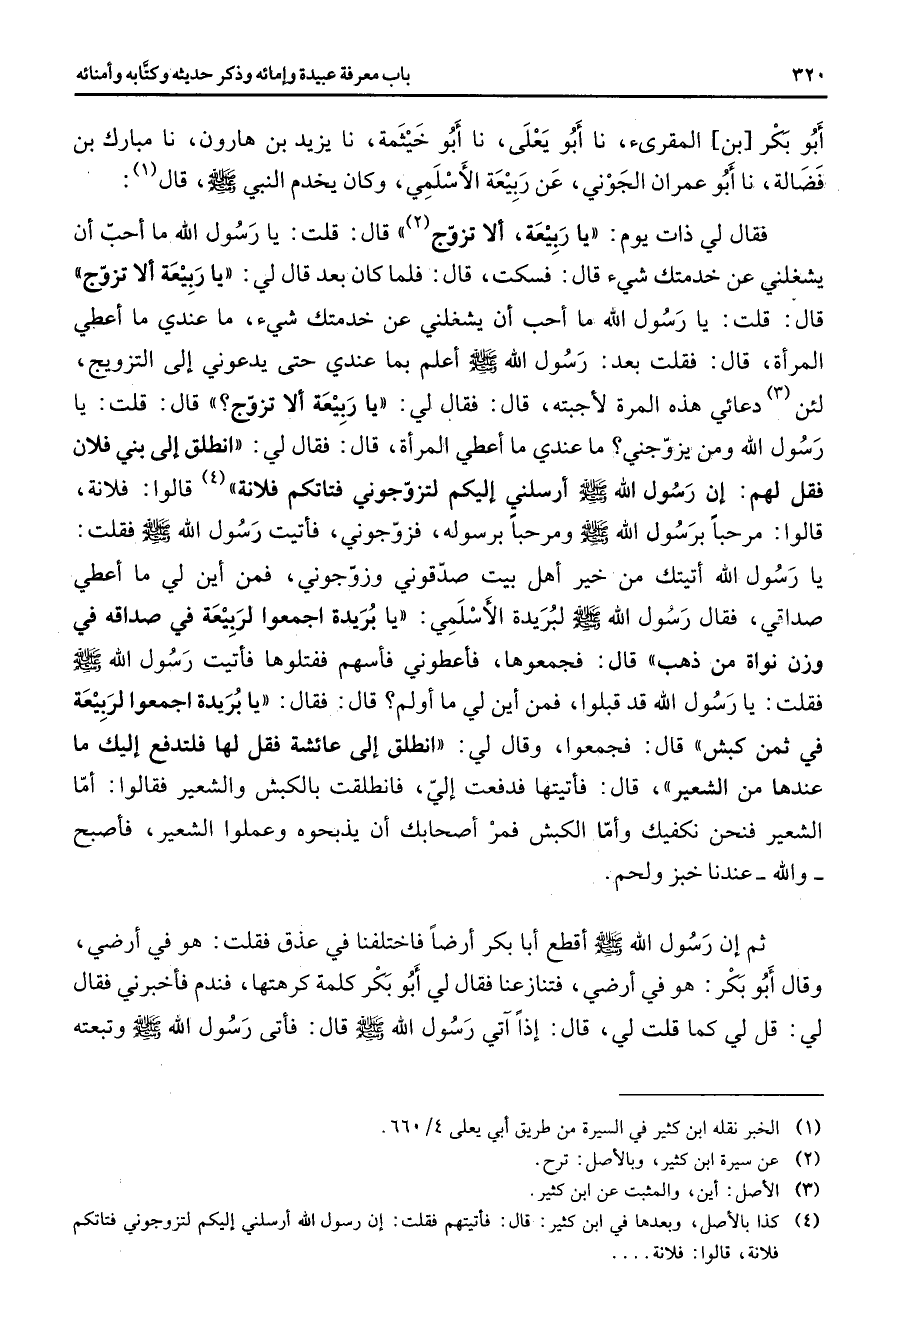 ٣٢٠ باب معرفة عبيدة وإمائه وذكر حديثه وكتَّابه وأمنائه
أَبُو بَكْر [بن] المقرىء، نا أَبُو يَعْلَى، نا أَبُو خَيْثَمة، نا يزيد بن هارون، نا مبارك بن
فَضَالة، نا أَبُو عمران الجَوْني، عَن رَبِيْعَة الأَسْلَمي، وكان يخدم النبي ﷺ، قال(١):
فقال لي ذات يوم: «يا رَبِيْعَة، ألا تزوّج(٢)» قال: قلت: يا رَسُول الله ما أحبّ أن
يشغلني عن خدمتك شيء قال: فسكت، قال: فلما كان بعد قال لي: «يا رَبِيْعَة ألا تزوّج»
قال: قلت: يا رَسُول الله ما أحب أن يشغلني عن خدمتك شيء، ما عندي ما أعطي
المرأة، قال: فقلت بعد: رَسُول الله ﷺ أعلم بما عندي حتى يدعوني إلى التزويج،
لئن(٣) دعائي هذه المرة لأجبته، قال: فقال لي: «يا رَبِيْعَة ألا تزوّج؟» قال: قلت: يا
رَسُول الله ومن يزوّجني؟ ما عندي ما أعطي المرأة، قال: فقال لي: «انطلق إلى بني فلان
فقل لهم: إن رَسُول الله ﷺ أرسلني إليكم لتزوّجوني فتاتكم فلانة»(٤) قالوا: فلانة،
قالوا: مرحباً برَسُول الله ﷺ ومرحباً برسوله، فزوّجوني، فأتيت رَسُول الله ﷺ فقلت:
يا رَسُول الله أتيتك من خير أهل بيت صدّقوني وزوّجوني، فمن أين لي ما أعطي
صداقي، فقال رَسُول الله ﷺ لبُرَيدة الأَسْلَمي: «يا بُرَيدة اجمعوا لرَبِيْعَة في صداقه في
وزن نواة من ذهب» قال: فجمعوها، فأعطوني فأسهم ففتلوها فأتيت رَسُول الله ﷺ
فقلت: يا رَسُول الله قد قبلوا، فمن أين لي ما أولم؟ قال: فقال: «يا بُرَيدة اجمعوا لرَبِيْعَة
في ثمن كبش» قال: فجمعوا، وقال لي: «انطلق إلى عائشة فقل لها فلتدفع إليك ما
عندها من الشعير»، قال: فأتيتها فدفعت إليّ، فانطلقت بالكبش والشعير فقالوا: أمّا
الشعير فنحن نكفيك وأمّا الكبش فمرْ أصحابك أن يذبحوه وعملوا الشعير، فأصبح
ـ والله ـ عندنا خبز ولحم.
ثم إن رَسُول الله ﷺ أقطع أبا بكر أرضاً فاختلفنا في عذق فقلت: هو في أرضي،
وقال أَبُو بَكْر: هو في أرضي، فتنازعنا فقال لي أَبُو بَكْر كلمة كرهتها، فندم فأخبرني فقال
لي: قل لي كما قلت لي، قال: إذاً آتي رَسُول الله ﷺ قال: فأتى رَسُول الله ﷺ وتبعته
(١) الخبر نقله ابن كثير في السيرة من طريق أبي يعلى ٤/ ٦٦٠.
(٢) عن سيرة ابن كثير، وبالأصل: ترح.
(٣) الأصل: أين، والمثبت عن ابن كثير.
(٤) كذا بالأصل، وبعدها في ابن كثير: قال: فأتيتهم فقلت: إن رسول الله أرسلني إليكم لتزوجوني فتاتكم
فلانة، قالوا: فلانة....